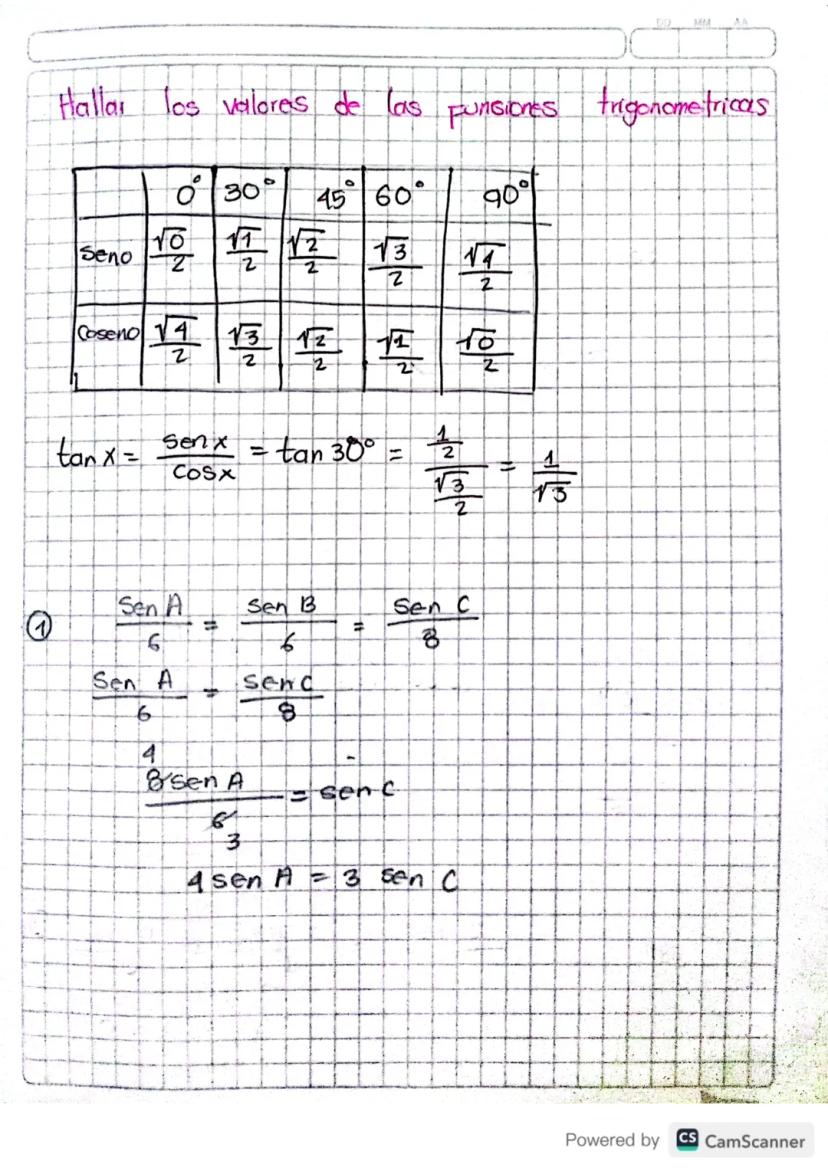 DD MM AA
Hallar los valores de las funsiones trigonometricas
0° 30° 45° 60° 90°
Seno √0/2 √1/2 √2/2 √3/2 √4/2
Coseno √4/2 √3/2 √2/2 √1/2 √0/2
tan x = sen x / cos x = tan 30° = (1/2)/(√3/2) = 1/√3
① Sen A/6 = sen B/6 = sen C/8
Sen A/6 = sen C/8
4
8 sen A/6 = sen C
3
4 sen A = 3 sen C
Powered by CS CamScanner